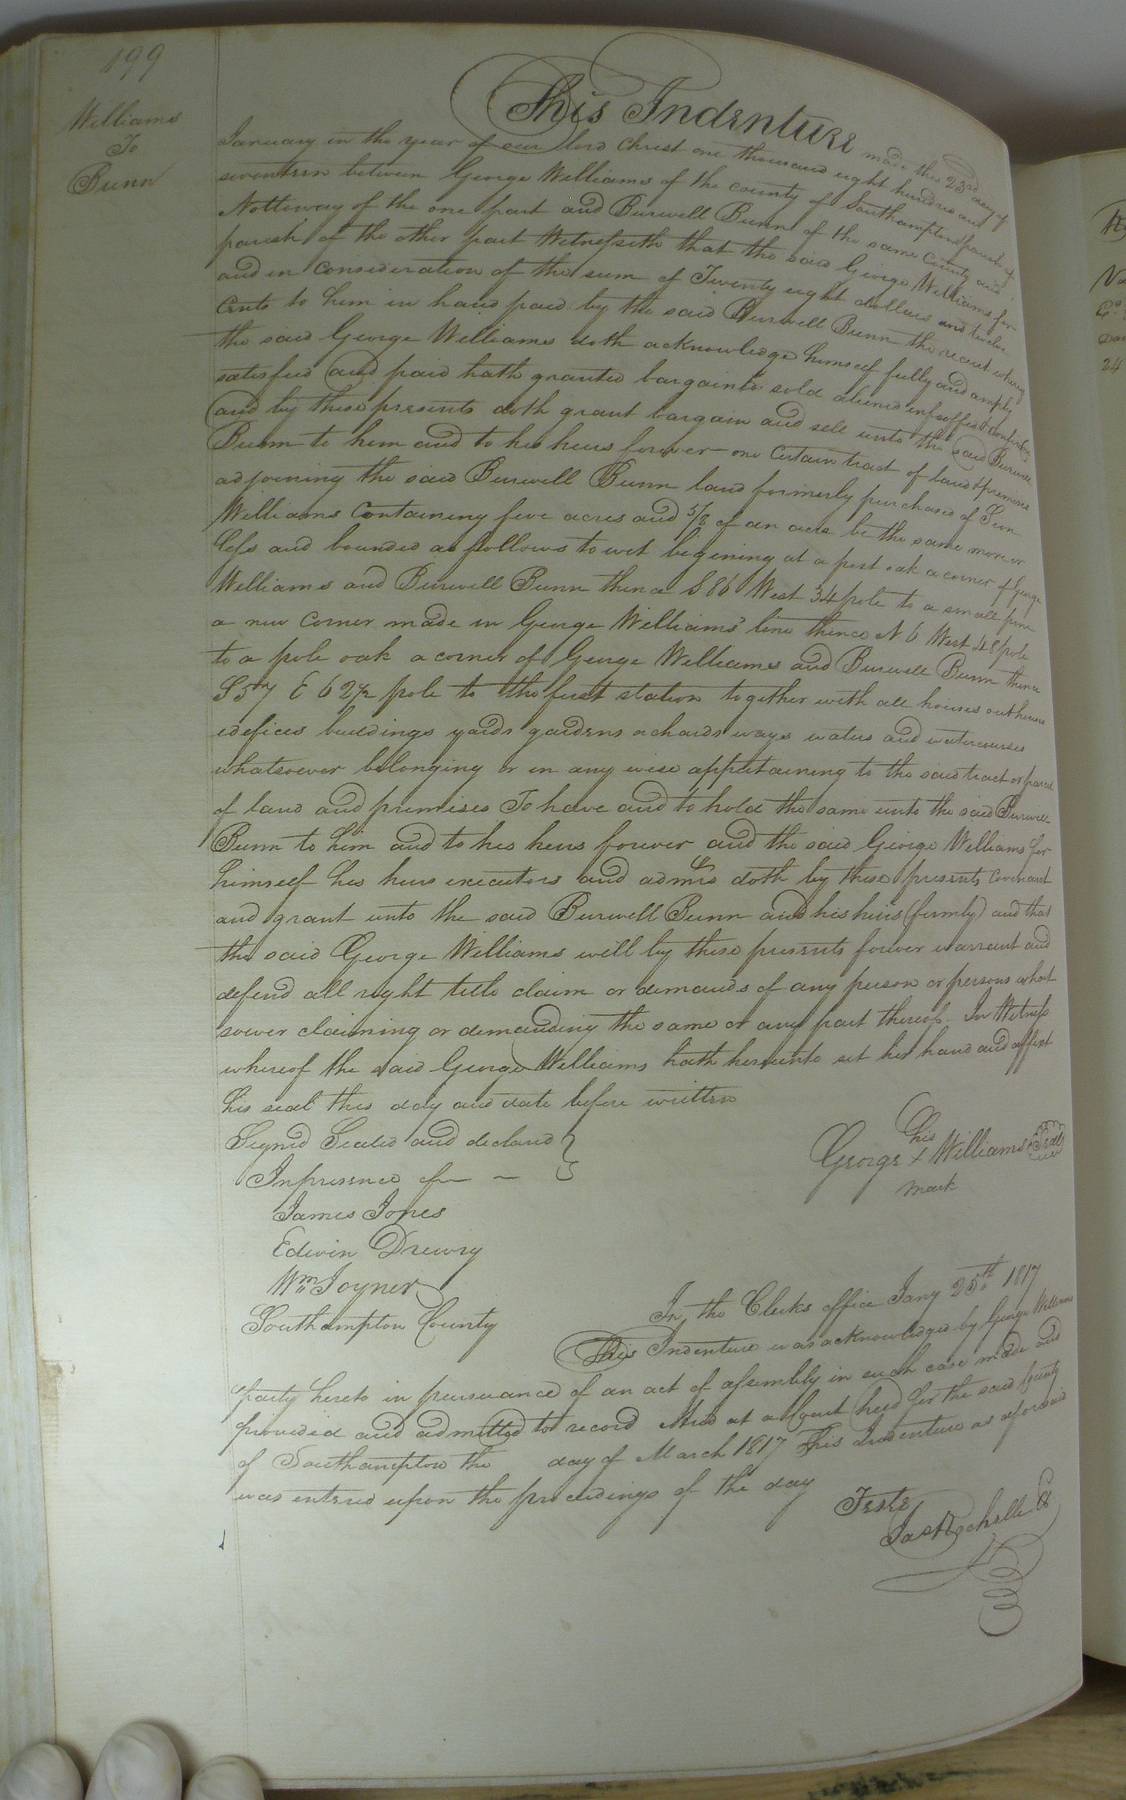 199
Williams
To
Bunn
This Indenture made this 23rd day of
January in the year of our lord Christ one thousand eight hundred and
seventeen between George Williams of the county of Southampton parish of
Nottoway of the one part and Burwell Bunn of the same County and
parish of the other part Witnesseth that the said George Williams for
and in consideration of the sum of Twenty eight dollars and twelve
Cents to him in hand paid by the said Burwell Bunn the receit whereof
the said George Williams doth acknowledge himself fully and amply
satisfied and paid hath granted bargained sold aliened infeoffed & confirmed
and by these presents doth grant bargain and sell unto the said Burwell
Bunn to him and to his heirs forever one Certain tract of land & premises
adjoining the said Burwell Bunn land formerly purchased of
Williams Containing five acres and 5/8 of an acre be the same more or
less and bounded as follows to wit begining at a post oak a corner of George
Williams and Burwell Bunn thence S 86 West 34 pole to a small pine
a new Corner made in George Williams' line thence N 6 West 48 pole
to a pole oak a corner of George Williams and Burwell Bunn thence
S 57 E 62½ pole to the first station together with all houses outhouses
edefices buildings yards gardens ochards ways waters and watercourses
whatsoever belonging or in any wise appertaining to the said tract or parcel
of land and premises To have and to hold the same unto the said Burwell
Bunn to him and to his heirs forever and the said George Williams for
himself his heirs executors and admrs doth by these presents Covenant
and grant unto the said Burwell Bunn and his heirs (firmly) and that
the said George Williams will by these presents forever warrant and
defend all right title claim or demands of any person or persons what
soever claiming or demanding the same or any part thereof. In Witness
whereof the said George Williams hath hereunto set his hand and affixt
his seal this day and date before written
Signd Sealed and declared }
In presence of
James Jones
Edwin Drewry
Wm Joyner
his
George + Williams Seal
mark
Southampton County
In the Clerks office Jany 25th 1817
This Indenture was acknowledged by George Williams
party hereto in persuance of an act of assembly in such case made and
provided and admitted to record And at a Court held for the said County
of Southampton the day of March 1817 This Indenture as aforesaid
was entered upon the proceedings of the day
Teste
Jas Rochelle Cl